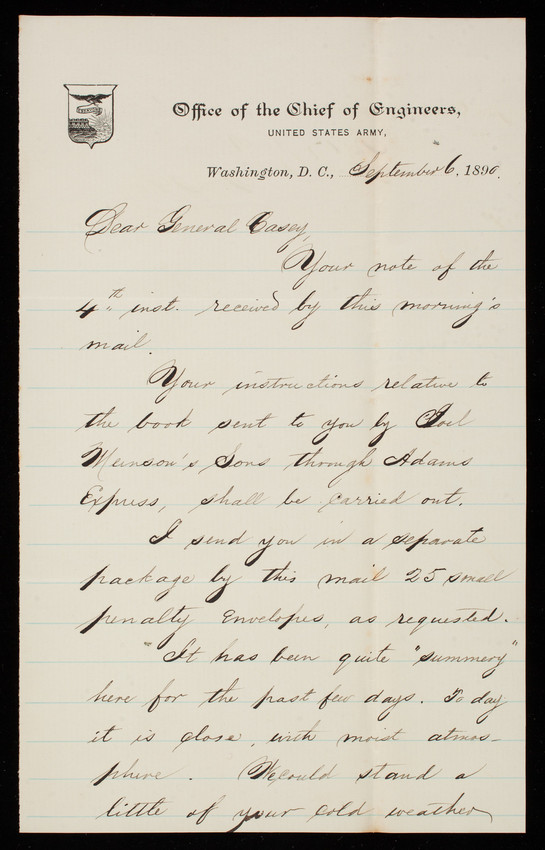 Office of the Chief of Engineers,
UNITED STATES ARMY,
Washington, D. C., September 6, 1890.
Dear General Casey,
Your note of the
4th inst. received by this morning's
mail.
Your instructions relative to
the book sent to you by Joel
Munson's Sons through Adams
Express, shall be carried out.
I send you in a separate
package by this mail 25 small
penalty Envelopes, as requested.
It has been quite "summery"
here for the past few days. To day
it is close, with moist atmos-
phere. We could stand a
little of your cold weather